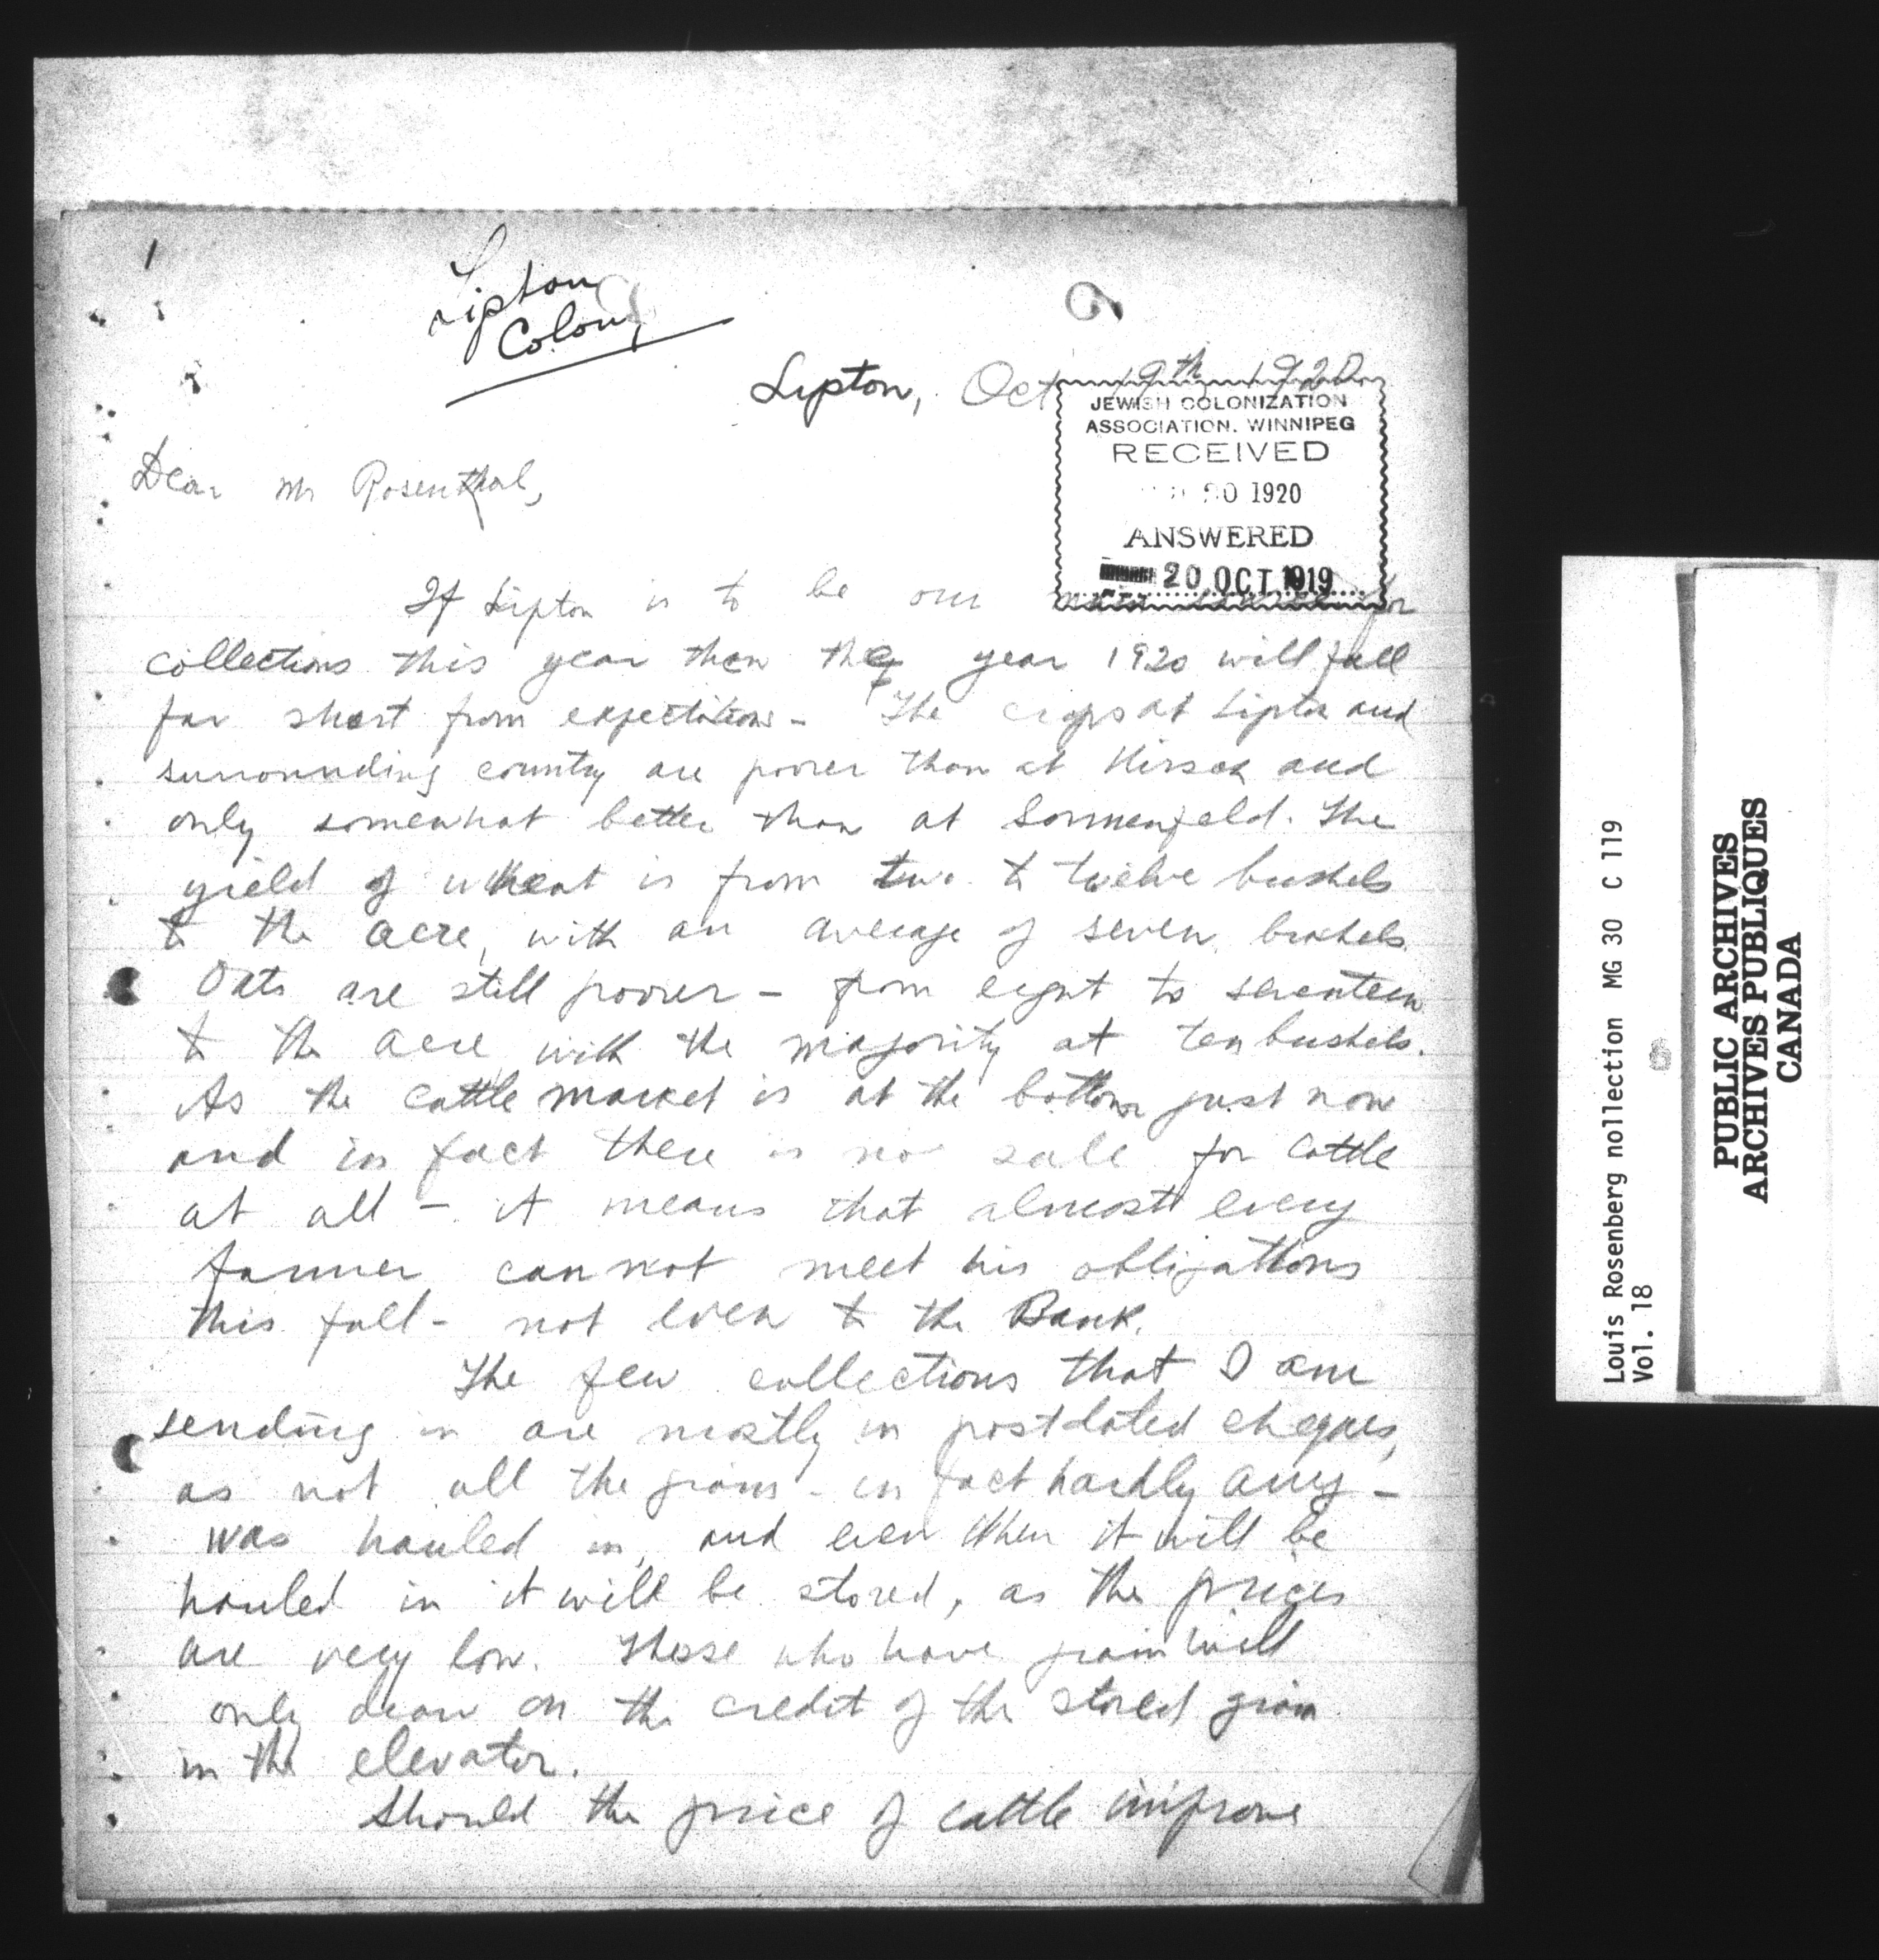 1
Lipton
Colony
Lipton, Oct 19th 1920
JEWISH COLONIZATION
ASSOCIATION. WINNIPEG
RECEIVED
20 1920
ANSWERED
20 OCT 1919
Dear Mr Rosenthal,
If Lipton is to be our main for
collections this year then the year 1920 will fall
far short from expectations - The crops at Lipton and
surrounding country are poorer than at Hirsch and
only somewhat better than at Sonnenfeld. The
yield of wheat is from two to twelve bushels
to the acre, with an average of seven bushels.
Oats are still poorer - from eight to seventeen
to the acre with the majority at ten bushels.
As the cattle market is at the bottom just now
and in fact there is no sale for cattle
at all - it means that almost every
farmer can not meet his obligations
this fall - not even to the Bank.
The few collections that I am
sending in are mostly in postdated cheques,
as not all the grain - in fact hardly any -
was hauled in, and even when it will be
hauled in it will be stored, as the prices
are very low. Those who have grain will
only draw on the credit of the stored grain
in the elevator.
Should the price of cattle improve
Louis Rosenberg nollection MG 30 C 119
Vol. 18
PUBLIC ARCHIVES
ARCHIVES PUBLIQUES
CANADA